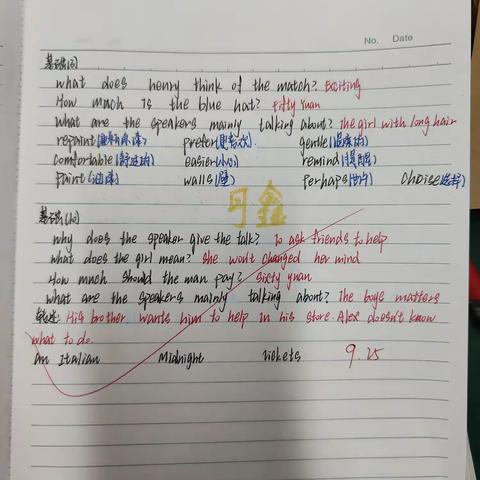 No. Date
基础(9)
what does henry think of the match? Exciting
How much Is the blue hat? Fifty Yuan
What are the speakers mainly talking about? The girl with long hair
repaint( prefer(更喜欢) gentle(温柔的)
comfortable(舒适的) easier(小心) remind(提醒)
paint(油漆) walls(墙) Perhaps( Choise(选择)
基础(10)
why does the speaker give the talk? To ask friends to help
what does the girl mean? She won't changed her mind
How much should the man pay? Sixty yuan
what are the speakers mainly talking about? The boye matters
His brother wants him to help in his store. Alex doesn't know
what to do.
An Italian Midnight Tickets 9.25